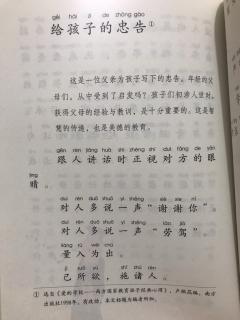 gěi hái zi de zhōng gào
给孩子的忠告①
这是一位父亲为孩子写下的忠告。年轻的父
母们，从中受到了启发吗？孩子们初涉人世时，
获得父母的经验与教训，是十分重要的。这是智
慧的传递，也是美德的教育。
gēn rén jiǎng huà shí zhèng shì duì fāng de yǎn
跟人讲话时正视对方的眼
jīng
睛。
duì rén duō shuō yì shēng xiè xie nǐ
对人多说一声“谢谢你”。
duì rén duō shuō yì shēng láo jià
对人多说一声“劳驾”。
liàng rù wéi chū
量入为出。
jǐ suǒ yù shī zhū rén
己所欲，施诸人。